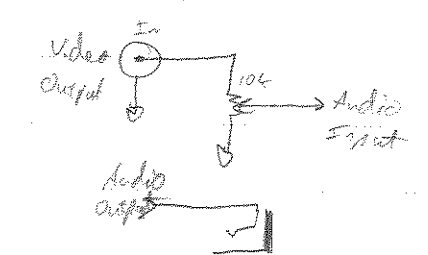 In
Video
Output
10k
Audio
Input
Audio
Output